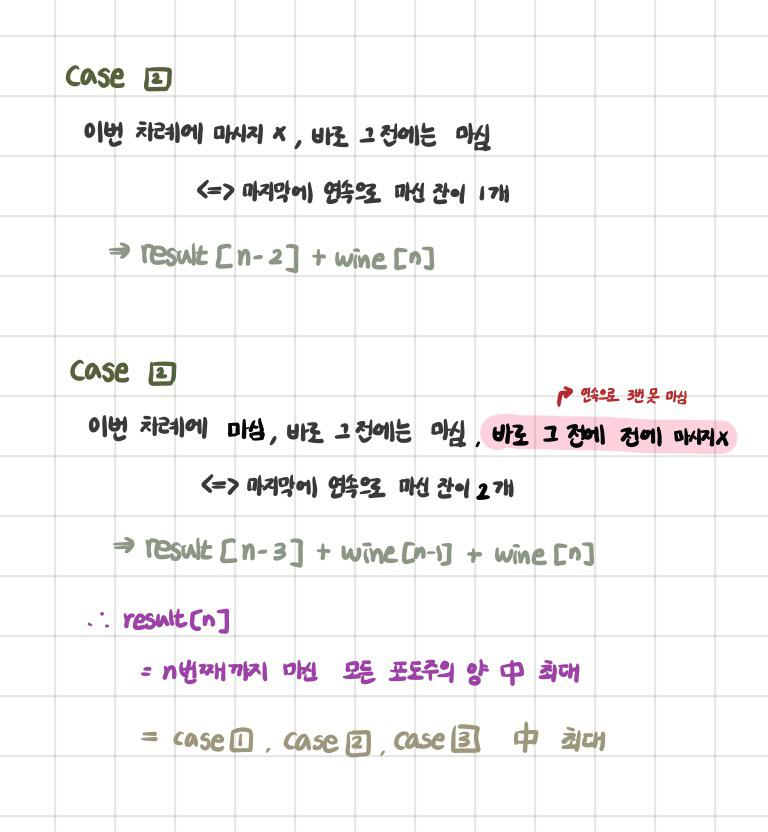 Case 2
이번 차례에 마시지 X, 바로 그 전에는 마심
<=> 마지막에 연속으로 마신 잔이 1개
⇒ result[n-2] + wine[n]
Case 2
연속으로 3번 못 마심
이번 차례에 마심, 바로 그 전에는 마심, 바로 그 전에 전에 마시지X
<=> 마지막에 연속으로 마신 잔이 2개
⇒ result[n-3] + wine[n-1] + wine[n]
∴ result[n]
= n번째까지 마신 모든 포도주의 양 中 최대
= case 1, case 2, case 3 中 최대